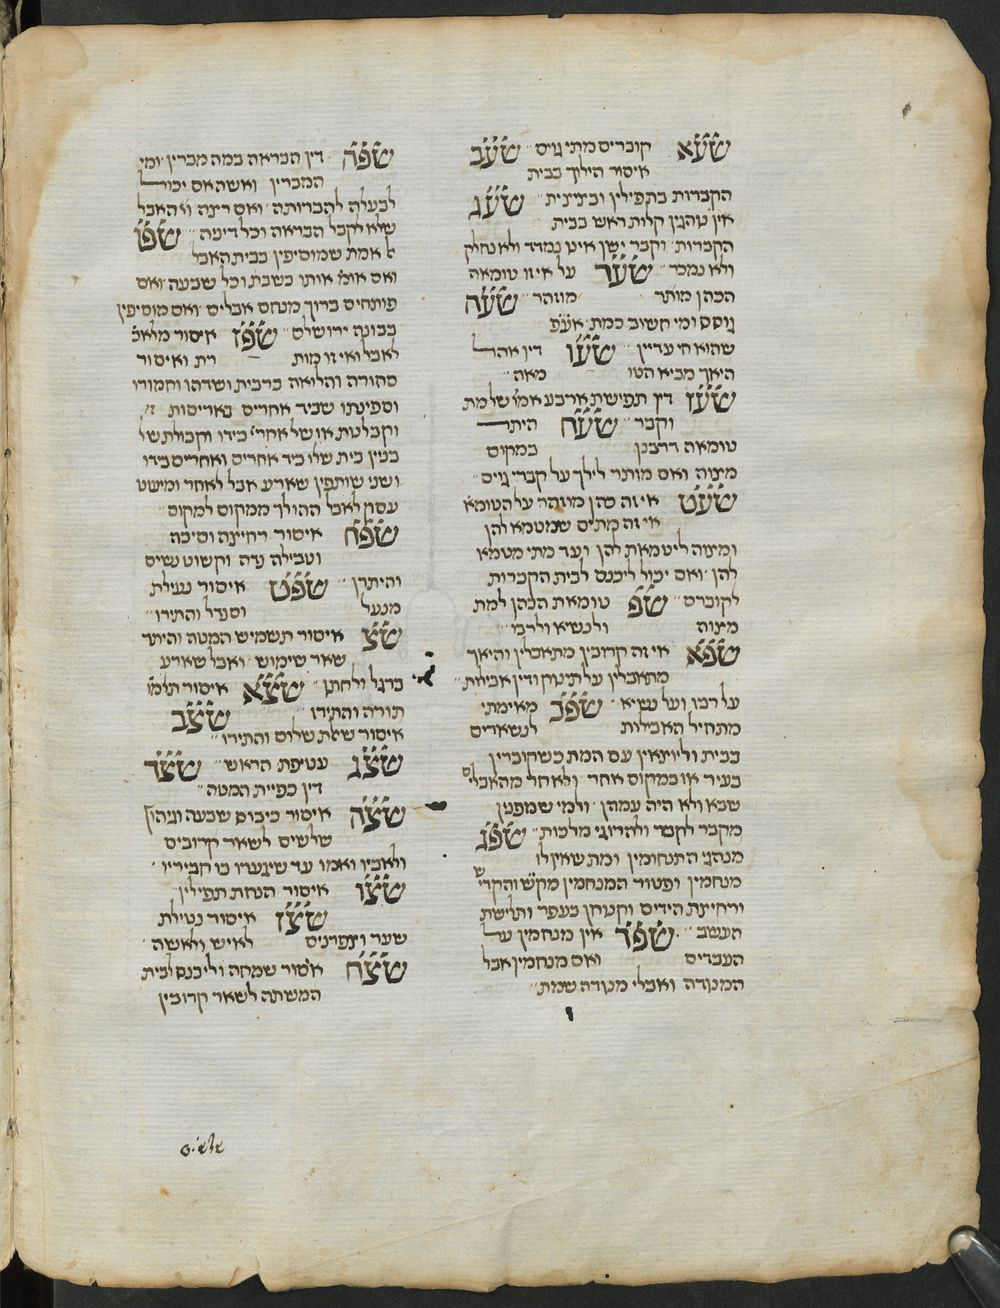 שעא קוברים מתי גוים שעב
איסור הילוך בבית
הקברות בתפילין ובציצית שעג
אין נוהגין קלות ראש בבית
הקברות וקבר ישן אינו נמדד ולא נחלק
ולא נמכר שעד על איזו טומאה
הכהן מותר מוזהר שעה
גוסס ומי חשוב כמת אע"פ
שהוא חי עדיין שעו דין אהל
היאך מביא הטו מאה
שעז דין תפישת ארבע אמו' של מת
וקבר שעח היתר
טומאה דרבנן במקום
מצוה ואם מותר לילך על קברי גוים
שעט איזה כהן מוזהר על הטומא'
איזה מתים שמטמא להן
ומצוה ליטמאת להן ועד מתי מטמא
להן ואם יכול ליכנס לבית הקברות
לקוברם שפ טומאת הכהן למת
מצוה ולנשיא ולרבו
שפא איזה קרובין מתאבלין והיאך
מתאבלין על תינוק ודין אבילות
על רבו ועל נשיא שפב מאימתי
מתחיל האבילות לנשארים
בבית וליוצאין עם המת כשקוברין
בעיר או במקום אחר ולאחד מהאבלים
שבא ולא היה עמהן ולמי שמפנין
מקבר לקבר ולהרוגי מלכות שפג
מנהגי התנחומין ומת שאין לו
מנחמין ופטור המנחמין מק"ש והקדיש
ורחיצת הידים וקטוחן בעפר ותלישת
העשב שפד אין מנחמין על
העבדים ואם מנחמין אבל
המנודה ואבלי מנודה שמת
שפה דין הבראה במה מברין ומי
המברין ואשה אם יכול
לבעלה להברותה ואם רוצה האבל
שלא לקבל הבראה וכל דיניה שפו
אמת שמוסיפין בבית האבל
ואם אומ' אותו בשבת וכל שבעה ואם
פותחים ברוך מנחם אבלים ואם מוסיפין
בבונה ירושלם שפז איסור מלאכ
לאבל ואיזו מות רת ואיסור
סחורה והלואה ברבית ושדהו וחמורו
וספינתו שביד אחרים באריסות
וקבלנות או של אחרי' בידו וקבולת של
בנין בית שלו ביד אחרים ואחרים בידו
ושני שותפין שארע אבל לאחד ומיעט
עסק לאבל ההולך ממקום למקום
שפח איסור רחיצה וסיכה
וטבילה נדה וקשוט נשים
והיתרן שפט איסור נעילת
מנעל וסנדל והתירו
שצ איסור תשמיש המטה והיתר
שאר שימוש ואבל שארע
ברגל ולחתן שצא איסור תלמו'
תורה והתירו שצב
איסור שאלת שלום והתירו
שצג עטיפת הראש שצד
דין כפיית המטה
שצה איסור כיבוס שבעה וגיהוץ
שלשים לשאר קרובים
ולאביו ואמו עד שיגערו בו חביריו
שצו איסור הנחת תפילין
שצז איסור נטילת
שער וצפרנים לאיש ולאשה
שצח איסור שמחה וליכנס לבית
המשתה לשאר קרובין